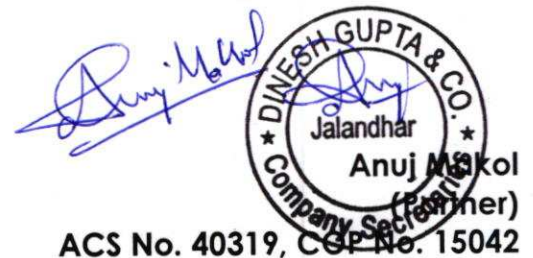 Anuj Makol
DINESH GUPTA & CO.
Jalandhar
Company Secretaries
Anuj Makol
(Partner)
ACS No. 40319, COP No. 15042